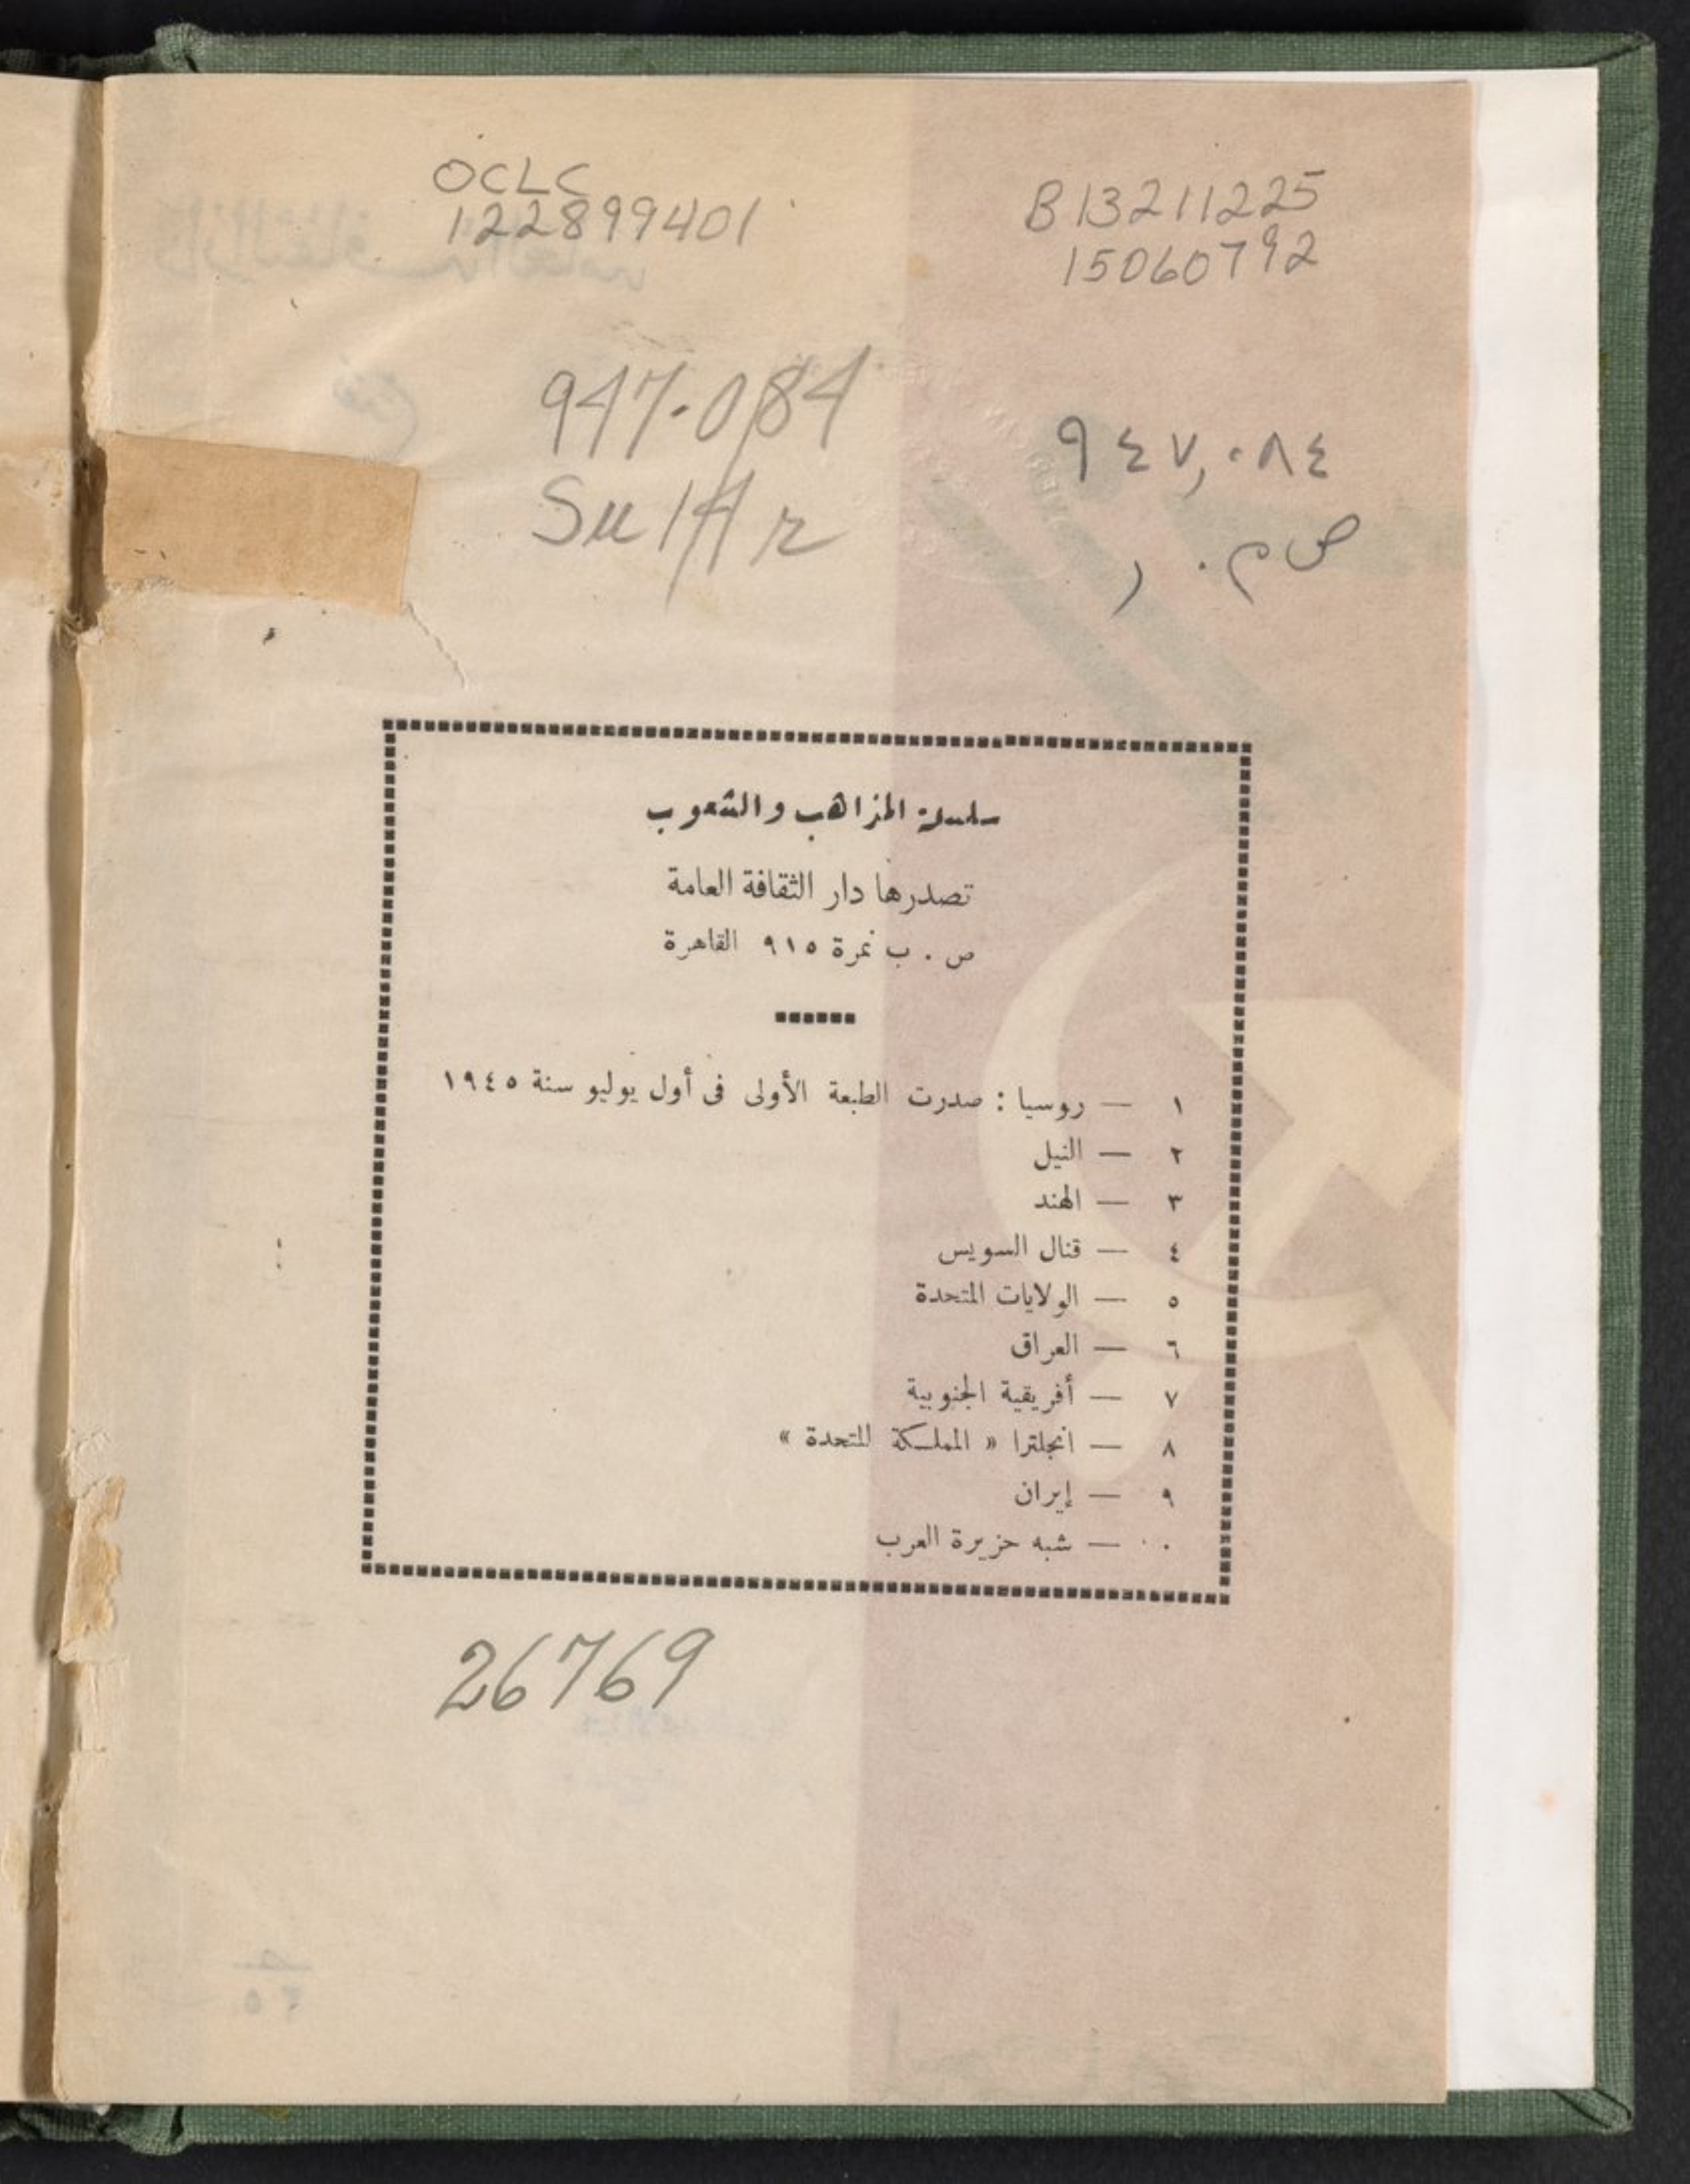 OCLC
122899401
B13211225
15060792
947.084
Su14r
٩٤٧,٠٨٤
ص م . ر
سلسلة المذاهب والشعوب
تصدرها دار الثقافة العامة
ص . ب نمرة ٩١٥ القاهرة
١ — روسيا : صدرت الطبعة الأولى فى أول يوليو سنة ١٩٤٥
٢ — النيل
٣ — الهند
٤ — قنال السويس
٥ — الولايات المتحدة
٦ — العراق
٧ — أفريقية الجنوبية
٨ — انجلترا « المملكة المتحدة »
٩ — إيران
٠ — شبه جزيرة العرب
26769